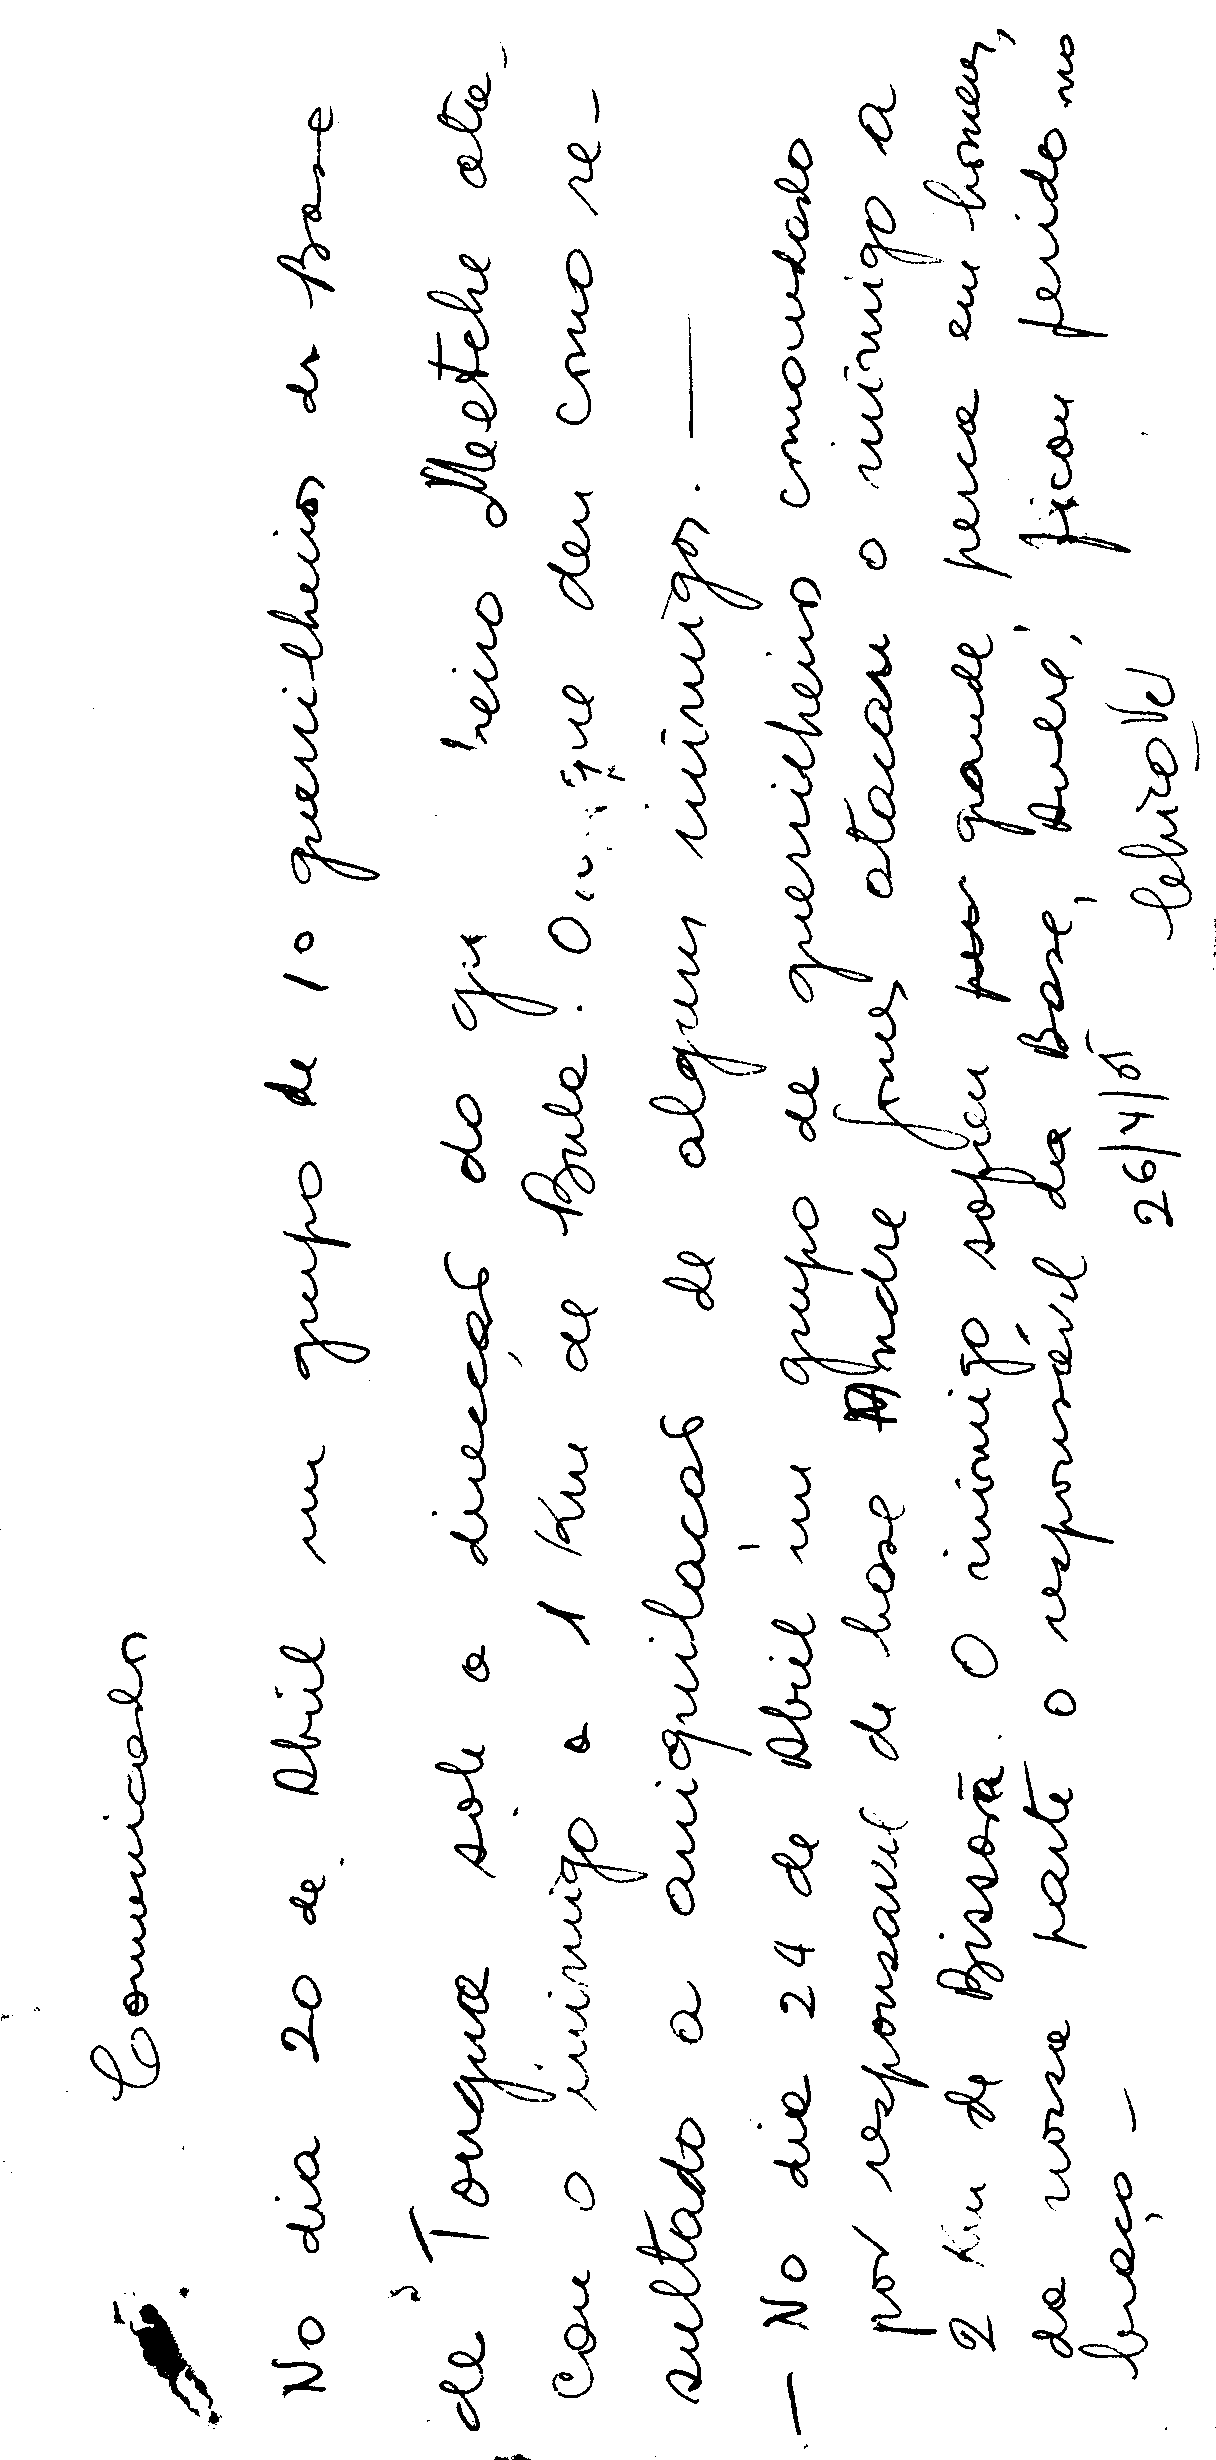 Comunicado
No dia 20 de Abril um grupo de 10 guerrilheiros da Base
de Tongua sob a direcção do gu reiro Metche ata-
com o inimigo a 1 Km de Bula. O que deu como re-
sultado a aniquilação de alguns inimigos. —
— No dia 24 de Abril um grupo de guerrilheiros comandado
por responsavel de base Andre Gomes, atacaru o inimigo a
2 Km de Bissorã. O inimigo sofreu grande perca em homens,
da nossa parte o responsável da Base, André, ficou ferido no
braço —
26/4/5